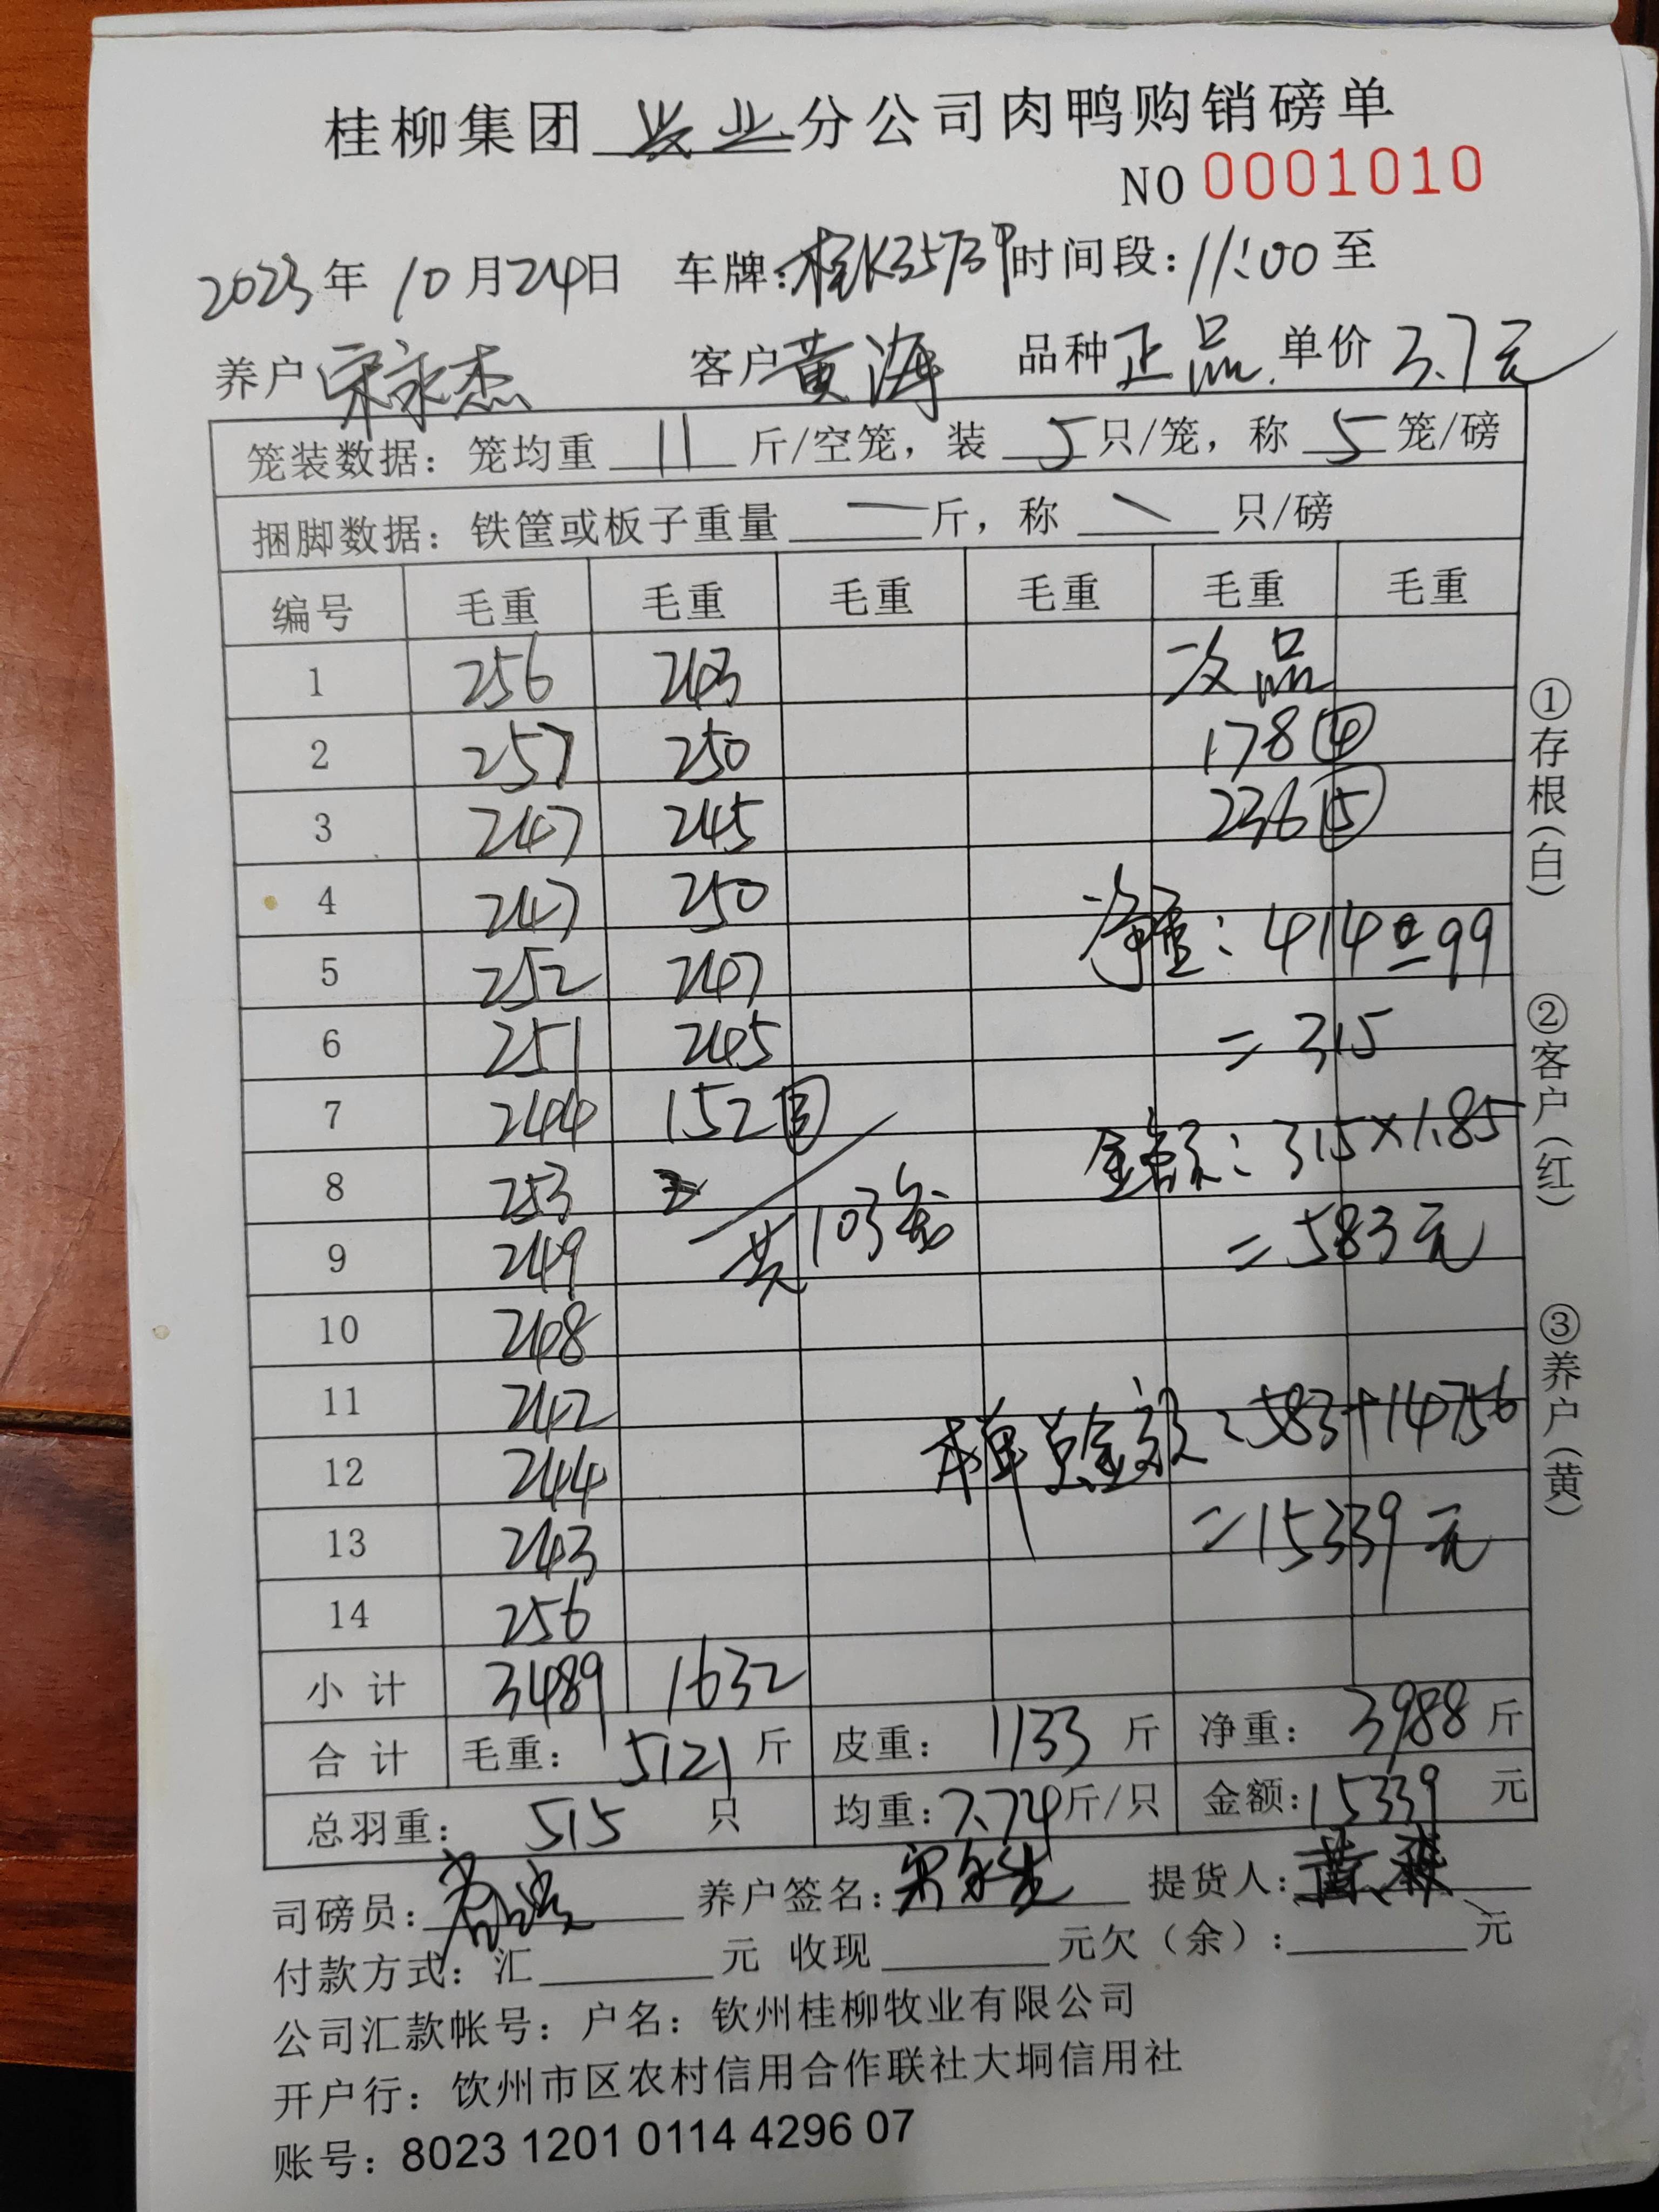 桂柳集团 兴业 分公司肉鸭购销磅单
NO 0001010
2023年 10月24日 车牌:桂K35739 时间段:11:00至
养户 宋永杰 客户 黄海 品种 正品. 单价 3.7元
笼装数据: 笼均重 11 斤/空笼, 装 5 只/笼, 称 5 笼/磅
捆脚数据: 铁筐或板子重量 一 斤, 称 \ 只/磅
编号 毛重 毛重 毛重 毛重 毛重 毛重
1 256 243 次品
2 257 250 178④
3 247 245 236⑤
4 247 250 净重: 414-99
5 252 247
6 251 245 = 315
7 244 152③ 金额: 315×1.85
8 253
9 249 共103笼 = 583元
10 248
11 242 本单总金额:583+14756
12 244
13 243 =15339元
14 256
小计 3489 1632
合计 毛重: 5121 斤 皮重: 1133 斤 净重: 3988 斤
总羽重: 515 只 均重:7.74斤/只 金额:15339 元
司磅员: 养户签名: 宋永杰 提货人: 黄
付款方式: 汇 元 收现 元欠(余): 元
公司汇款帐号: 户名: 钦州桂柳牧业有限公司
开户行: 钦州市区农村信用合作联社大垌信用社
账号: 8023 1201 0114 4296 07
①存根(白) ②客户(红) ③养户(黄)